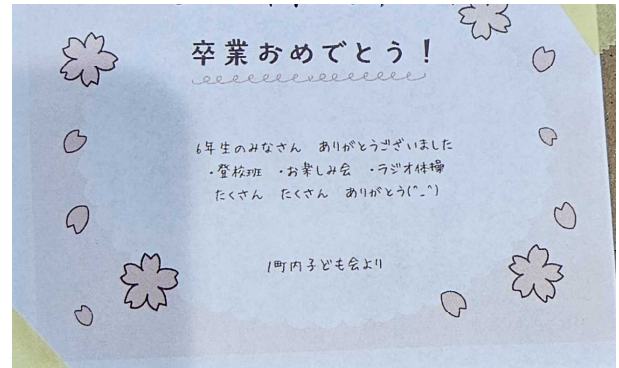 卒業おめでとう!
6年生のみなさん ありがとうございました
・登校班 ・お楽しみ会 ・ラジオ体操
たくさん たくさん ありがとう(^_^)
1町内子ども会より